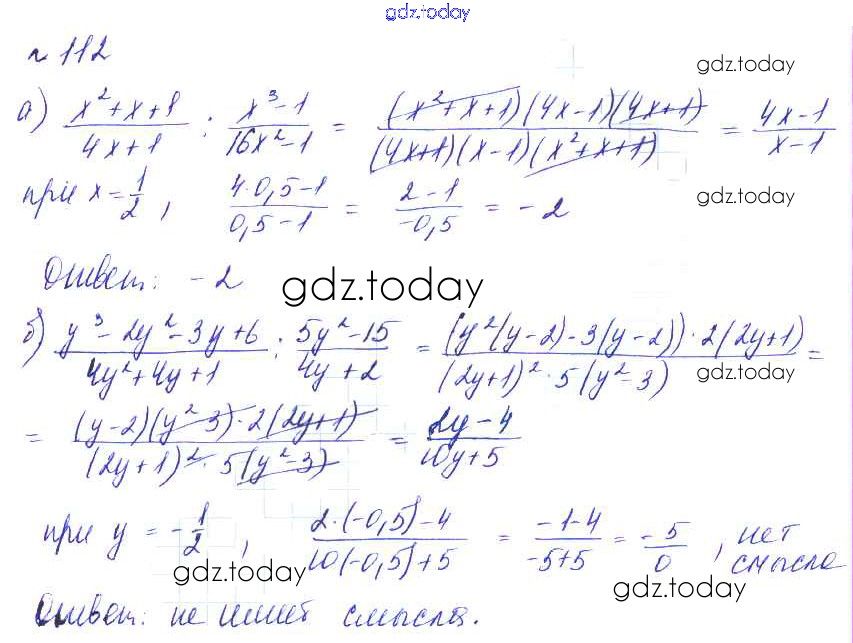 gdz.today
№ 112
gdz.today
а) (x²+x+1)/(4x+1) : (x³-1)/(16x²-1) = ((x²+x+1)(4x-1)(4x+1))/((4x+1)(x-1)(x²+x+1)) = (4x-1)/(x-1)
при x = 1/2, (4·0,5-1)/(0,5-1) = (2-1)/(-0,5) = -2
gdz.today
Ответ: -2
gdz.today
б) (y³-2y²-3y+6)/(4y²+4y+1) : (5y²-15)/(4y+2) = ((y²(y-2)-3(y-2))·2(2y+1))/((2y+1)²·5(y²-3)) =
gdz.today
= ((y-2)(y²-3)·2(2y+1))/((2y+1)²·5(y²-3)) = (2y-4)/(10y+5)
при y = -1/2, (2·(-0,5)-4)/(10(-0,5)+5) = (-1-4)/(-5+5) = -5/0, нет смысла
gdz.today
gdz.today
Ответ: не имеет смысла.